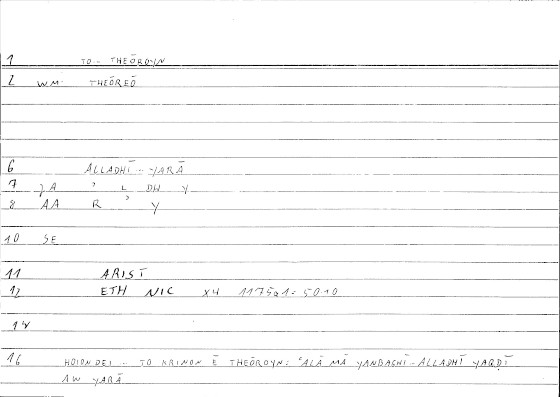 1 TO - THEŌROYN
2 WM: THEŌREŌ
6 ALLADHĪ - YARĀ
7 ʾ L DH Y
8 AA R ʾ Y
10 SE
11 ARIST
12 ETH NIC X4 1175a1: 5010
14
16 HOION DEI - TO KRINON Ē THEŌROYN: ʿALĀ MĀ YANBAGHĪ - ALLADHĪ YAQDĪ
AW YARĀ